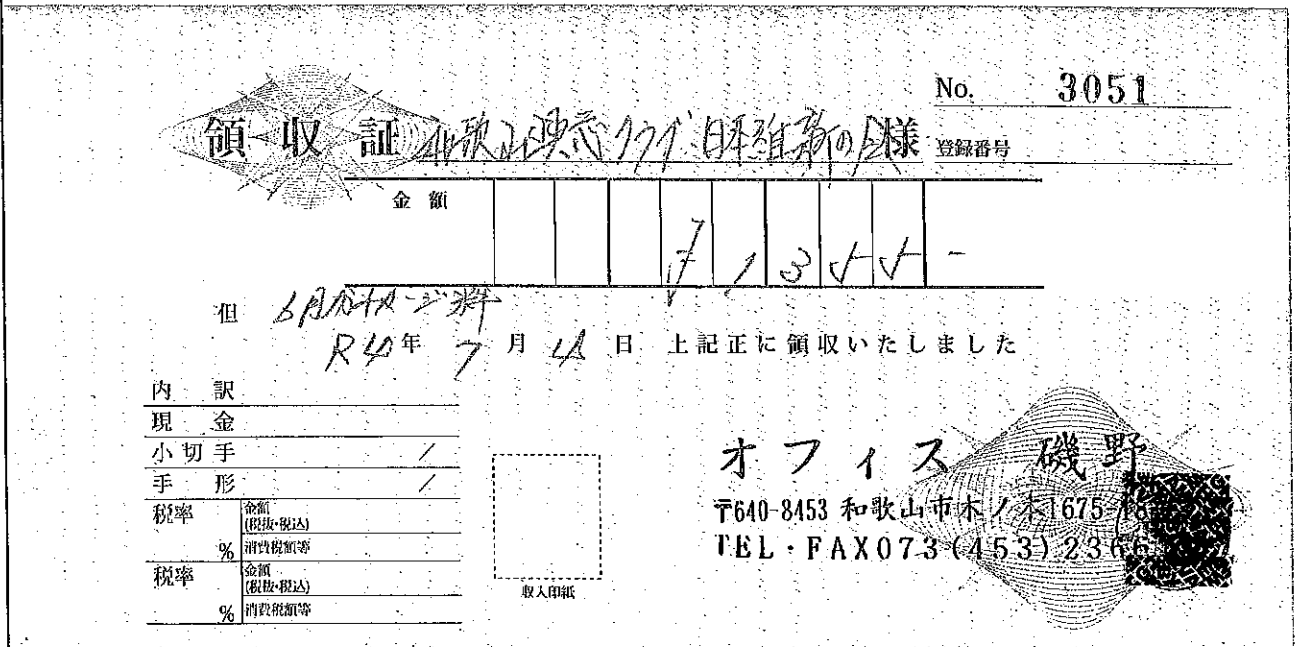 No. 3051
領収証 和歌山興志クラブ日本維新の会様
登録番号
金額
¥1355-
但 6月分
R4年7月4日 上記正に領収いたしました
内訳
現金
小切手 /
手形 /
税率 % 金額(税抜・税込)
消費税額等
税率 % 金額(税抜・税込)
消費税額等
収入印紙
オフィス 磯野
〒640-8453 和歌山市木ノ本1675-18
TEL・FAX073(453)2366